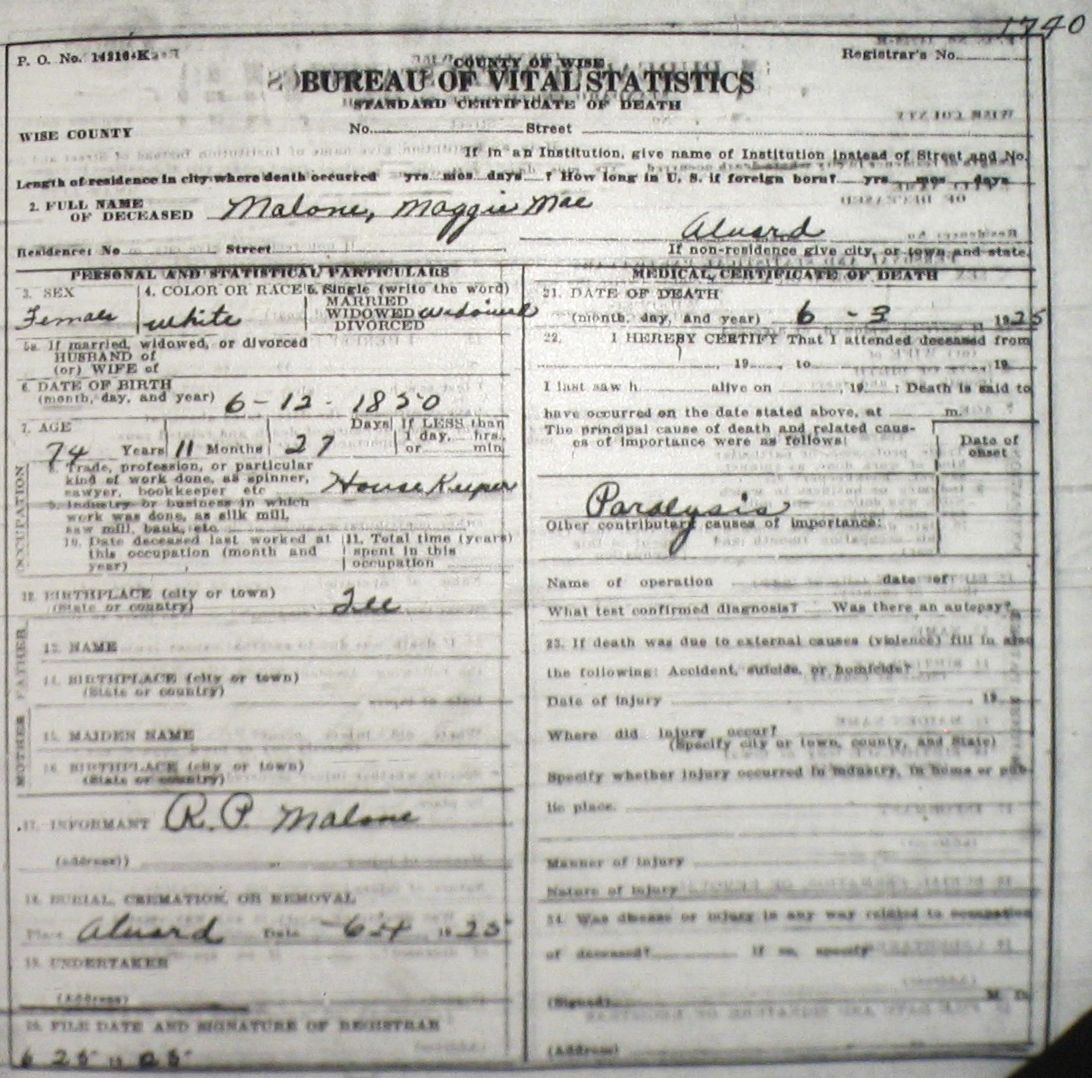 1740
P. O. No. 14216-K
Registrar's No.
COUNTY OF WISE
BUREAU OF VITAL STATISTICS
STANDARD CERTIFICATE OF DEATH
WISE COUNTY No. Street
If in an Institution, give name of Institution instead of Street and No.
Length of residence in city where death occurred yrs mos days ? How long in U. S. if foreign born? yrs mos days
2. FULL NAME
OF DECEASED Malone, Maggie Mae
Alvard
Residence: No Street
If non-residence give city, or town and state.
PERSONAL AND STATISTICAL PARTICULARS
3. SEX 4. COLOR OR RACE 5. Single (write the word)
MARRIED
Female White WIDOWED Widowed
DIVORCED
5a. If married, widowed, or divorced
HUSBAND of
(or) WIFE of
6. DATE OF BIRTH
(month, day, and year) 6-12-1850
7. AGE Days If LESS than
74 Years 11 Months 27 1 day, hrs.
or min.
OCCUPATION
8. Trade, profession, or particular
kind of work done, as spinner,
sawyer, bookkeeper etc House Keeper
9. Industry or business in which
work was done, as silk mill,
saw mill, bank, etc.
10. Date deceased last worked at 11. Total time (years)
this occupation (month and spent in this
year) occupation
12. BIRTHPLACE (city or town)
(State or country)
FATHER
13. NAME
14. BIRTHPLACE (city or town)
(State or country)
MOTHER
15. MAIDEN NAME
16. BIRTHPLACE (city or town)
(State or country)
17. INFORMANT R. P. Malone
(Address)
18. BURIAL, CREMATION, OR REMOVAL
Place Alvard Date 6-4 1925
19. UNDERTAKER
(Address)
20. FILE DATE AND SIGNATURE OF REGISTRAR
6 25 19
MEDICAL CERTIFICATE OF DEATH
21. DATE OF DEATH
(month, day, and year) 6 - 3 1925
22. I HEREBY CERTIFY That I attended deceased from
, 19 to , 19
I last saw h alive on 19 : Death is said to
have occurred on the date stated above, at m.
The principal cause of death and related caus-
es of importance were as follows:
Date of
onset
Paralysis
Other contributary causes of importance:
Name of operation date of
What test confirmed diagnosis? Was there an autopsy?
23. If death was due to external causes (violence) fill in also
the following: Accident, suicide, or homicide?
Date of injury 19
Where did injury occur?
(Specify city or town, county, and State)
Specify whether injury occurred in industry, in home or pub-
lic place.
Manner of injury
Nature of injury
24. Was disease or injury in any way related to occupation
of deceased? If so, specify
(Signed) M. D.
(Address)